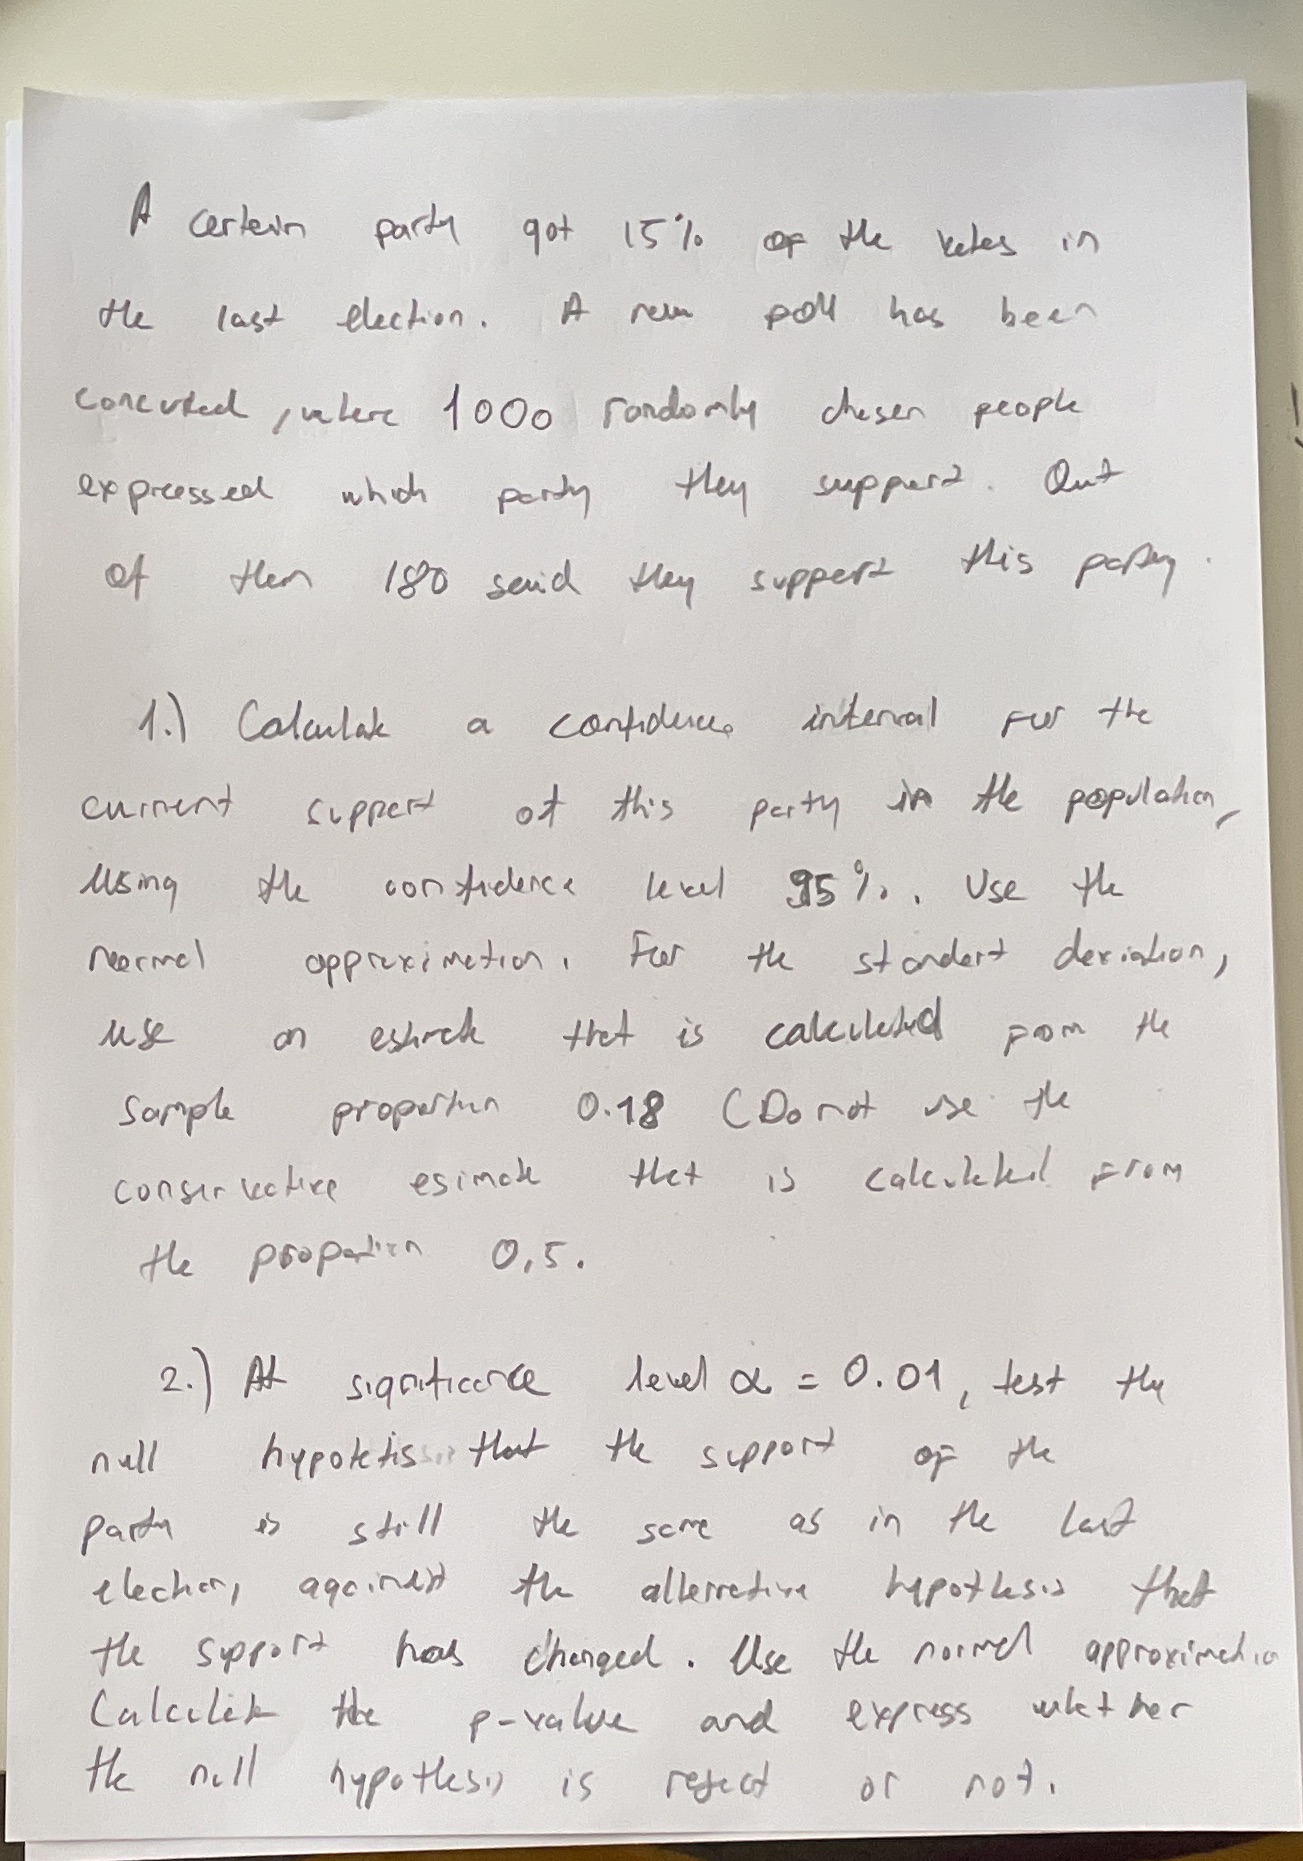 A certein party got 15% of the votes in
the last election. A new poll has been
concuted, where 1000 randomly chosen people
expressed which party they support. Out
of them 180 said they support this party.
1.) Calculate a confidence interval for the
current support of this party in the population,
Using the confidence level 95%. Use the
normal approximation. For the standert deviation,
use an estimate that is calculated from the
sample proportion 0.18 (Do not use the
conservative esimate that is calculated from
the proportion 0,5.
2.) At significance level α = 0.01, test the
null hypotetis that the support of the
party is still the same as in the last
election, against the alternative hypothesis that
the support has changed. Use the normal approximation
Calculate the p-value and express whether
the null hypothesis is reject or not.